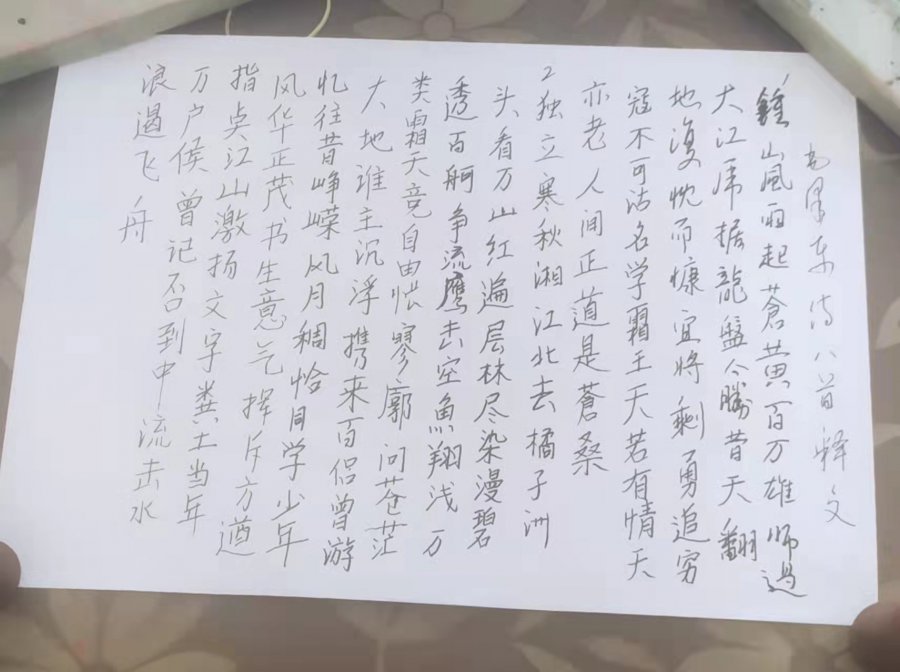 毛泽东诗八首释文
1鍾山風雨起蒼黄百万雄师過
大江虎据龍盤今勝昔天翻
地復忱而慷宜将剩勇追穷
寇不可沽名学霸王天若有情天
亦老人间正道是蒼桑
2独立寒秋湘江北去橘子洲
头看万山红遍层林尽染漫碧
透百舸争流鹰去空魚翔浅万
类霜天竞自由怅寥廓问苍茫
大地谁主沉浮携来百侣曾游
忆往昔峥嵘风月稠恰同学少年
风华正茂书生意气挥斥方遒
指点江山激扬文字粪土当年
万户侯曾记否到中流击水
浪遏飞舟